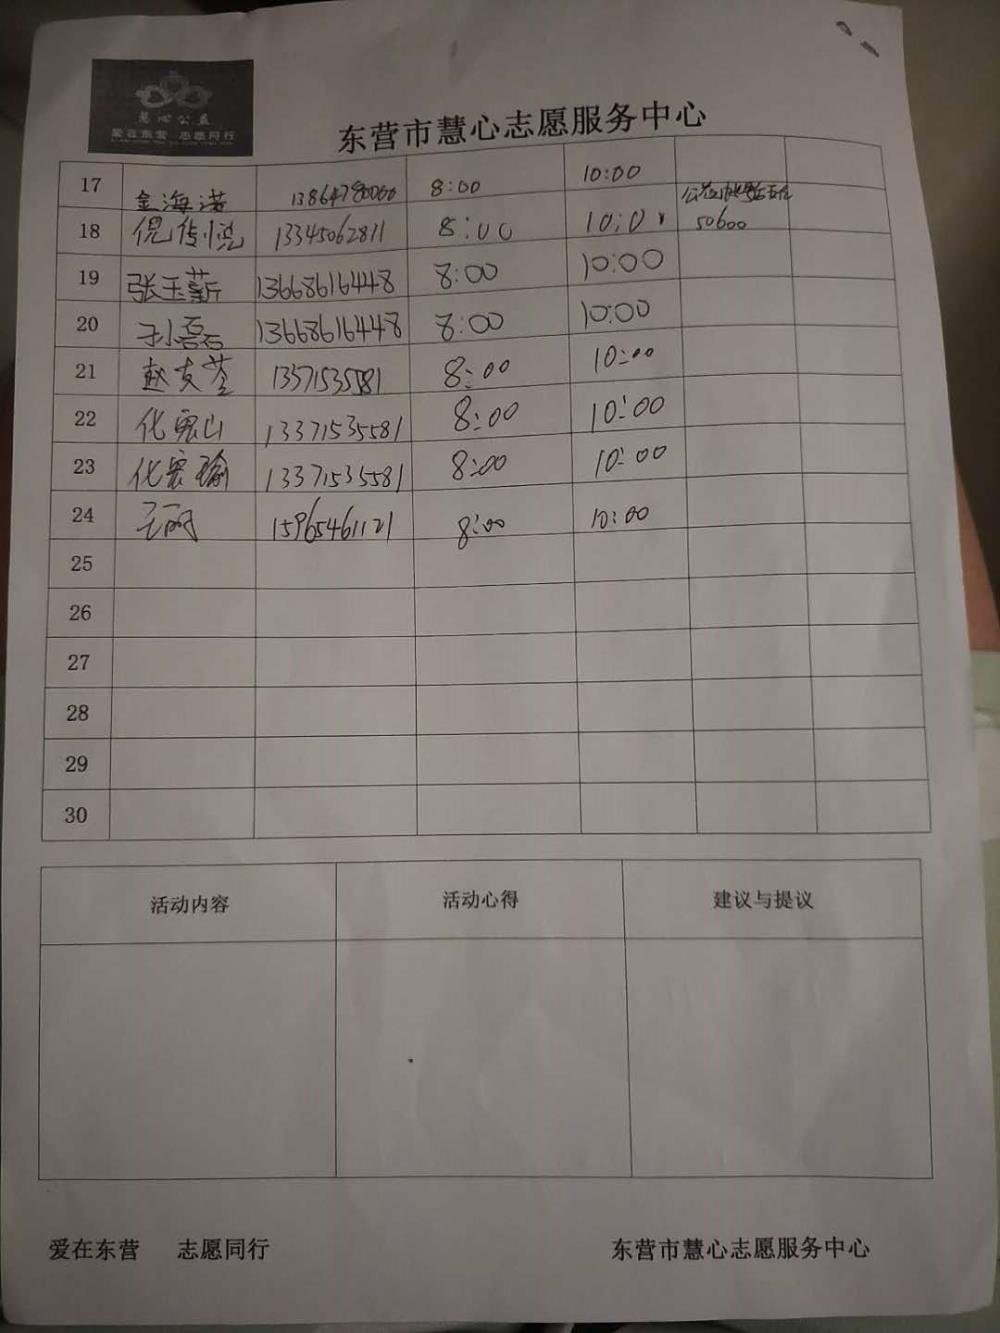 慧心公益
爱在东营 志愿同行
东营市慧心志愿服务中心
17 金海诺 13864780060 8:00 10:00
18 倪传悦 13345062811 8:00 10:0 50600
19 张玉薪 13668616448 8:00 10:00
20 孙小磊 13668616448 8:00 10:00
21 赵友 13571535581 8:00 10:00
22 化山 13371535581 8:00 10:00
23 化瑜 13371535581 8:00 10:00
24 王丽 15965461121 8:00 10:00
25
26
27
28
29
30
活动内容 活动心得 建议与提议
爱在东营 志愿同行 东营市慧心志愿服务中心